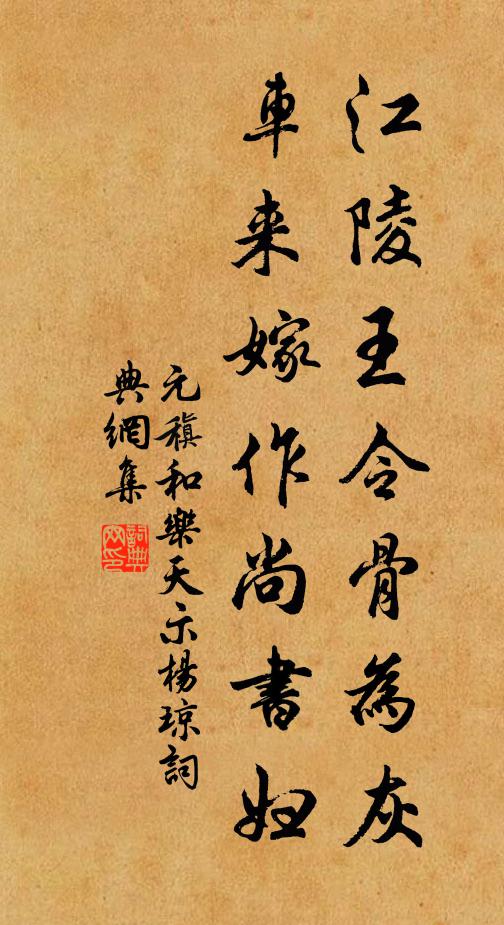 江陵王令骨為灰
車来嫁作尚書婦
元稹和樂天示楊琼詞
典網集
詞典网印